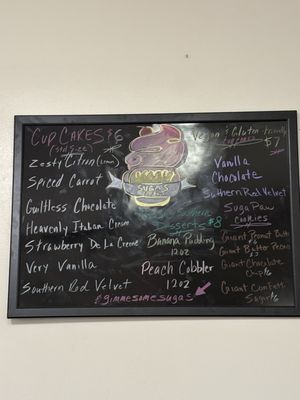 CUPCAKES $6
(Std Size)
Zesty Citron (Lemon)
Spiced Carrot
Guiltless Chocolate
Heavenly Italian Cream
Strawberry De La Creme
Very Vanilla
Southern Red Velvet
SUGAS
Desserts $8
Banana Pudding
12oz
Peach Cobbler
12oz
#gimmesomesugas
Vegan & Gluten-friendly
cupcakes $7
Vanilla
Chocolate
Southern Red Velvet
Suga Paw
cookies
Giant Peanut Butter
Giant Butter Pecan
Giant Chocolate
Chip
Giant Confetti
Sugar